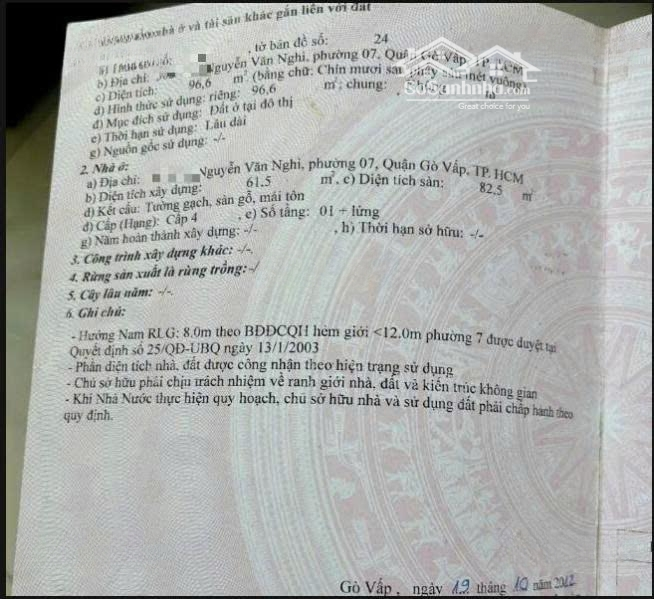 nhà ở và tài sản khác gắn liền với đất
, tờ bản đồ số: 24
b) Địa chỉ: Nguyễn Văn Nghi, phường 07, Quận Gò Vấp, TP.HCM
c) Diện tích: 96,6 m² (bằng chữ: Chín mươi sáu phẩy sáu mét vuông)
d) Hình thức sử dụng: riêng: 96,6 m²; chung:
đ) Mục đích sử dụng: Đất ở tại đô thị
e) Thời hạn sử dụng: Lâu dài
g) Nguồn gốc sử dụng: -/-
SoSanhnha.com
Great choice for you
2. Nhà ở:
a) Địa chỉ: Nguyễn Văn Nghi, phường 07, Quận Gò Vấp, TP. HCM
b) Diện tích xây dựng: 61.5 m², c) Diện tích sàn: 82,5 m²
d) Kết cấu: Tường gạch, sàn gỗ, mái tôn
đ) Cấp (Hạng): Cấp 4 , e) Số tầng: 01 + lửng
g) Năm hoàn thành xây dựng: -/- , h) Thời hạn sở hữu: -/-
3. Công trình xây dựng khác: -/-
4. Rừng sản xuất là rừng trồng: -/
5. Cây lâu năm: -/-
6. Ghi chú:
- Hướng Nam RLG: 8,0m theo BĐĐCQH hẻm giới <12.0m phường 7 được duyệt tại
Quyết định số 25/QĐ-UBQ ngày 13/1/2003
- Phần diện tích nhà, đất được công nhận theo hiện trạng sử dụng
- Chủ sở hữu phải chịu trách nhiệm về ranh giới nhà, đất và kiến trúc không gian
- Khi Nhà Nước thực hiện quy hoạch, chủ sở hữu nhà và sử dụng đất phải chấp hành theo
quy định.
Gò Vấp , ngày 19 tháng 10 năm 2012